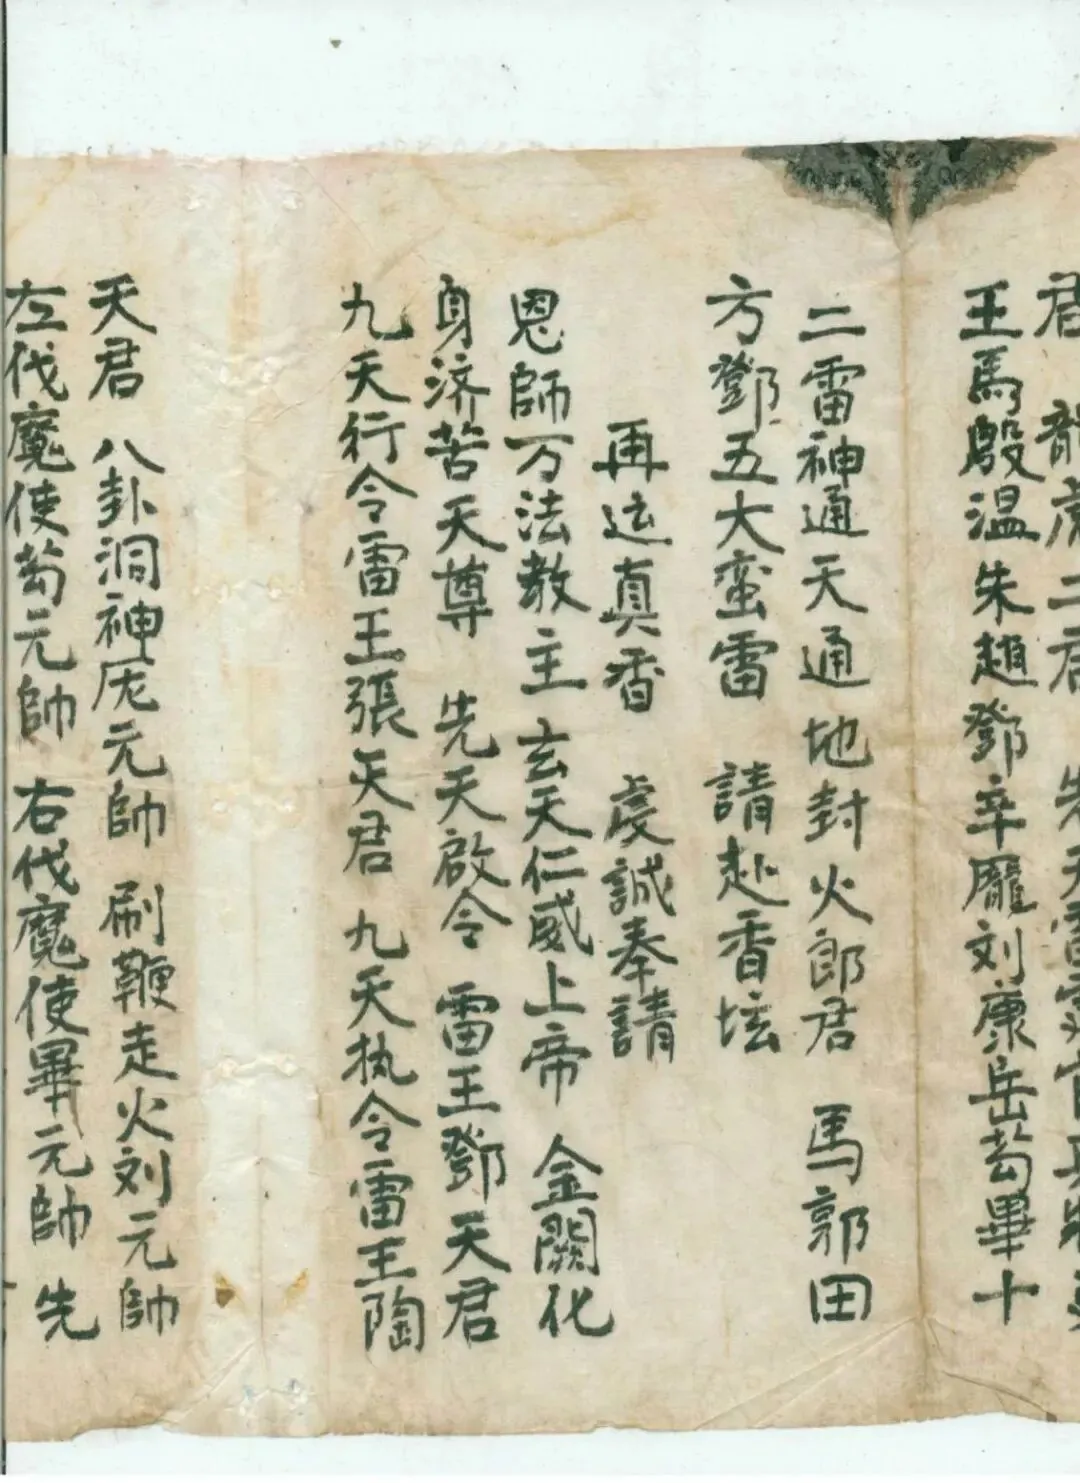 君 龍虎二君 先天
王馬殷温朱趙鄧辛龐刘康岳苟畢十
二雷神通天通地封火郎君 馬郭田
方鄧五大蛮雷 請赴香坛
再运真香 虔誠奉請
恩師万法教主 玄天仁威上帝 金闕化
身济苦天尊 先天啟令 雷王鄧天君
九天行令雷王張天君 九天执令雷王陶
天君 八卦洞神厐元帥 刷鞭走火刘元帥
左伐魔使苟元帥 右伐魔使畢元帥 先